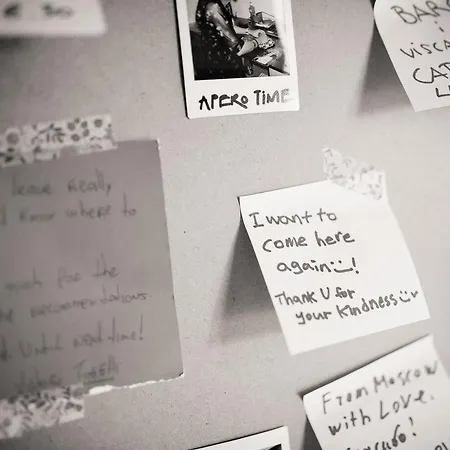 APERO TIME
BARC
i
VISCA
CAT
leave Really
Know where to
much for the
Recommendations
Until next time!
I want to
come here
again :)!
Thank U for
your Kindness :)
From Moscow
with Love.